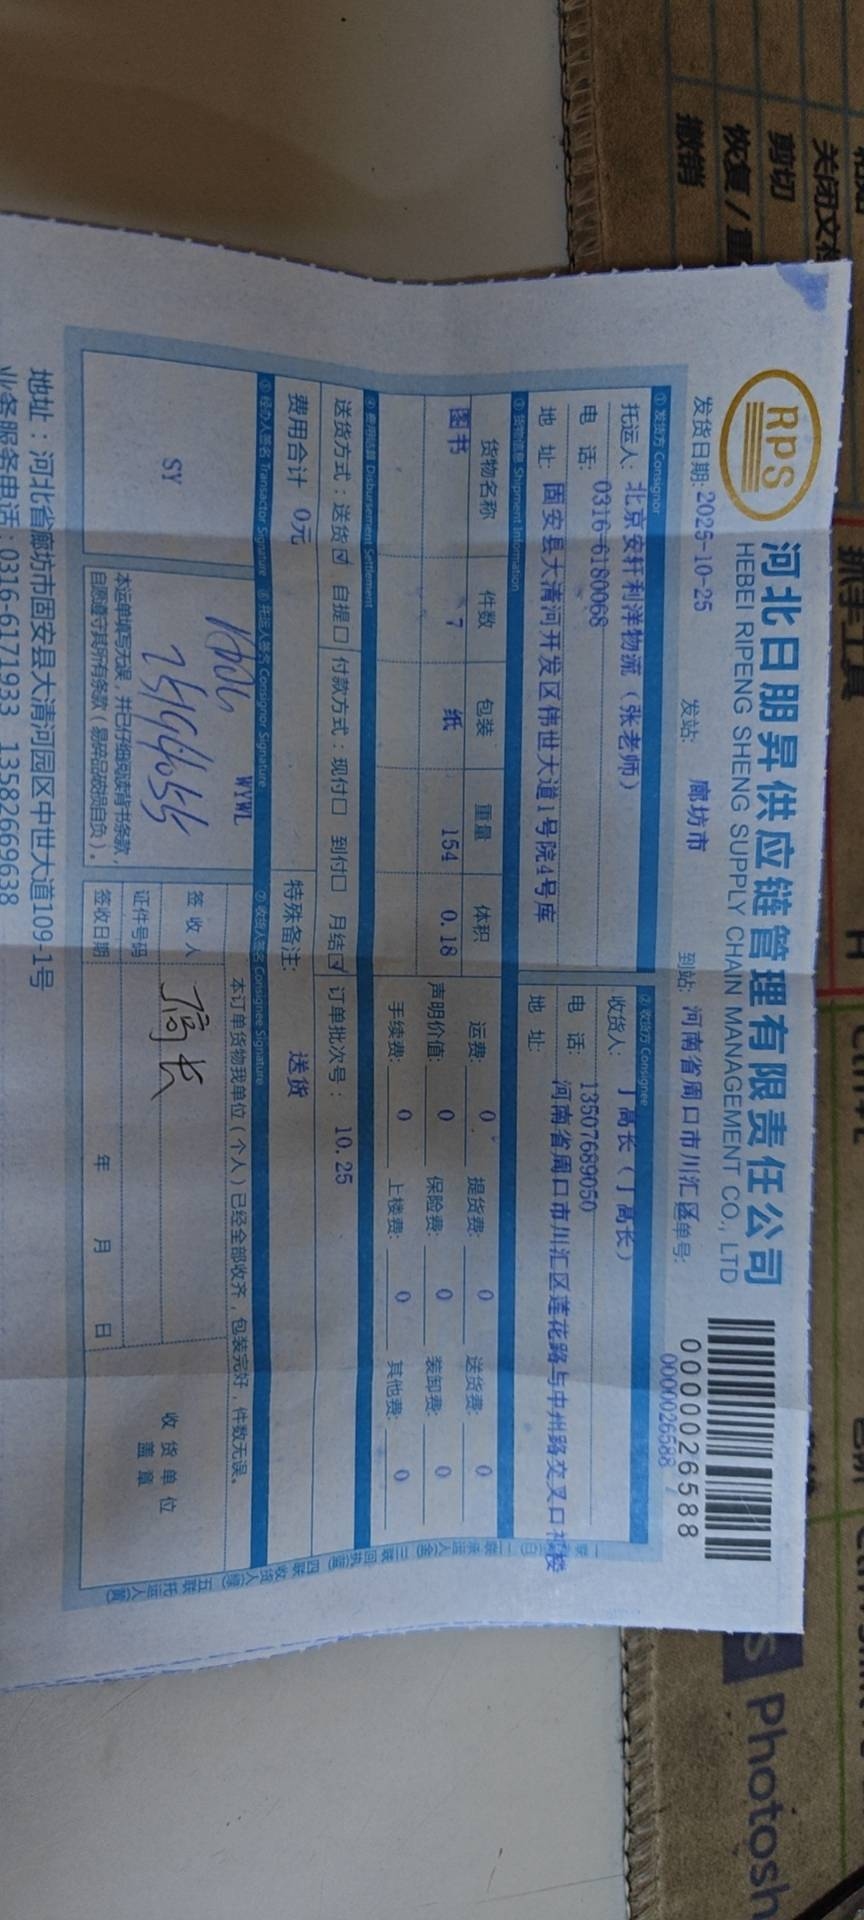 RPS
河北日朋昇供应链管理有限责任公司
HEBEI RIPENG SHENG SUPPLY CHAIN MANAGEMENT CO., LTD
0000026588
发货日期: 2025-10-25 发站: 廊坊市 到站: 河南省周口市川汇区 单号: 0000026588
① 发货方 Consignor ② 收货方 Consignee
托运人: 北京安轩利洋物流（张老师） 收货人: 丁高长（丁高长）
电 话: 0316-6180068 电 话: 13507689050
地 址: 固安县大清河开发区伟世大道1号院4号库 地 址: 河南省周口市川汇区莲花路与中州路交叉口
③ 货物信息 Shipment Information
货物名称 件数 包装 重量 体积 运费: 0 提货费: 0 送货费: 0
图书 7 纸 154 0.18 声明价值: 0 保险费: 0 装卸费: 0
手续费: 0 上楼费: 0 其他费: 0
④ 费用结算 Disbursement Settlement
送货方式：送货☑ 自提口 付款方式：现付口 到付口 月结☑ 订单批次号： 10.25
费用合计 0元 特殊备注: 送货
⑤ 经办人签名 Transactor Signature ⑥ 托运人签名 Consignor Signature ⑦ 收货人签名 Consignee Signature
SY
WYWL
本运单填写无误，并已仔细阅读背书条款，
自愿遵守其所有条款（易碎品破损自负）。
本订单货物我单位（个人）已经全部收齐，包装完好，件数无误。
签 收 人 丁高长
证件号码
签收日期 年 月 日
收 货 单 位
盖 章
地址：河北省廊坊市固安县大清河园区中世大道109-1号
业务服务电话：0316-6171933 13582669638
撤销
恢复/重
剪切
关闭文档
抓手工具
H
Photosh